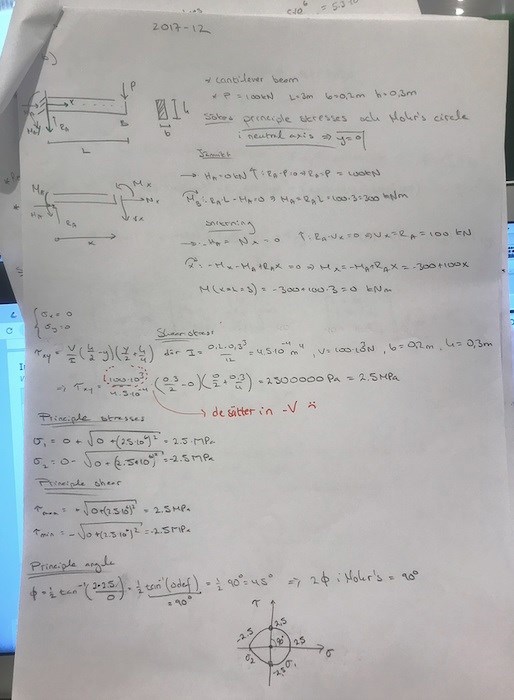 2017-12
* cantilever beam
* P = 100kN L=3m b=0,2m h=0,3m
principle stresses och Mohr's circle
i neutral axis ⇒ y=0
P
x
B
L
h
b
→ HA=0kN ↑: RA-P=0 ⇒ RA=P = 100kN
: RA·L - MA=0 ⇒ MA=RA·L=100·3=300 kNm
Snittning
→ -HA = Nx = 0 ↑: RA-Vx=0 ⇒ Vx=RA = 100 kN
: -Mx-MA+RAx =0 ⇒ Mx=-MA+RAx = -300+100x
M(x=L=3) = -300+100·3 = 0 kNm
MA
Mx
HA
RA
x
σx = 0
σy = 0
Shear stress
τxy = V/I (h/2 - y)(y/2 + h/4) där I = 0,2·0,3³/12 = 4.5·10⁻⁴ m⁴, V=100·10³N, b=0,2m, h=0,3m
⇒ τxy = 100·10³/4.5·10⁻⁴ (0.3/2 - 0)(0/2 + 0.3/4) = 2500000 Pa = 2.5MPa
→ de sätter in -V
Principle stresses
σ1 = 0 + √0+(2.5·10⁶)² = 2.5 MPa
σ2 = 0 - √0+(2.5·10⁶)² = -2.5 MPa
Principle shear
τmax = +√0+(2.5·10⁶)² = 2.5MPa
τmin = -√0+(2.5·10⁶)² = -2.5MPa
Principle angle
φ = ½ tan⁻¹(2·2.5/0) = ½ tan⁻¹(odef) = ½ 90° = 45° ⇒ 2φ i Mohr's = 90°
= 90°
τ
-2.5 2.5
90° 2.5 σ
σ2 σ1
-2.5